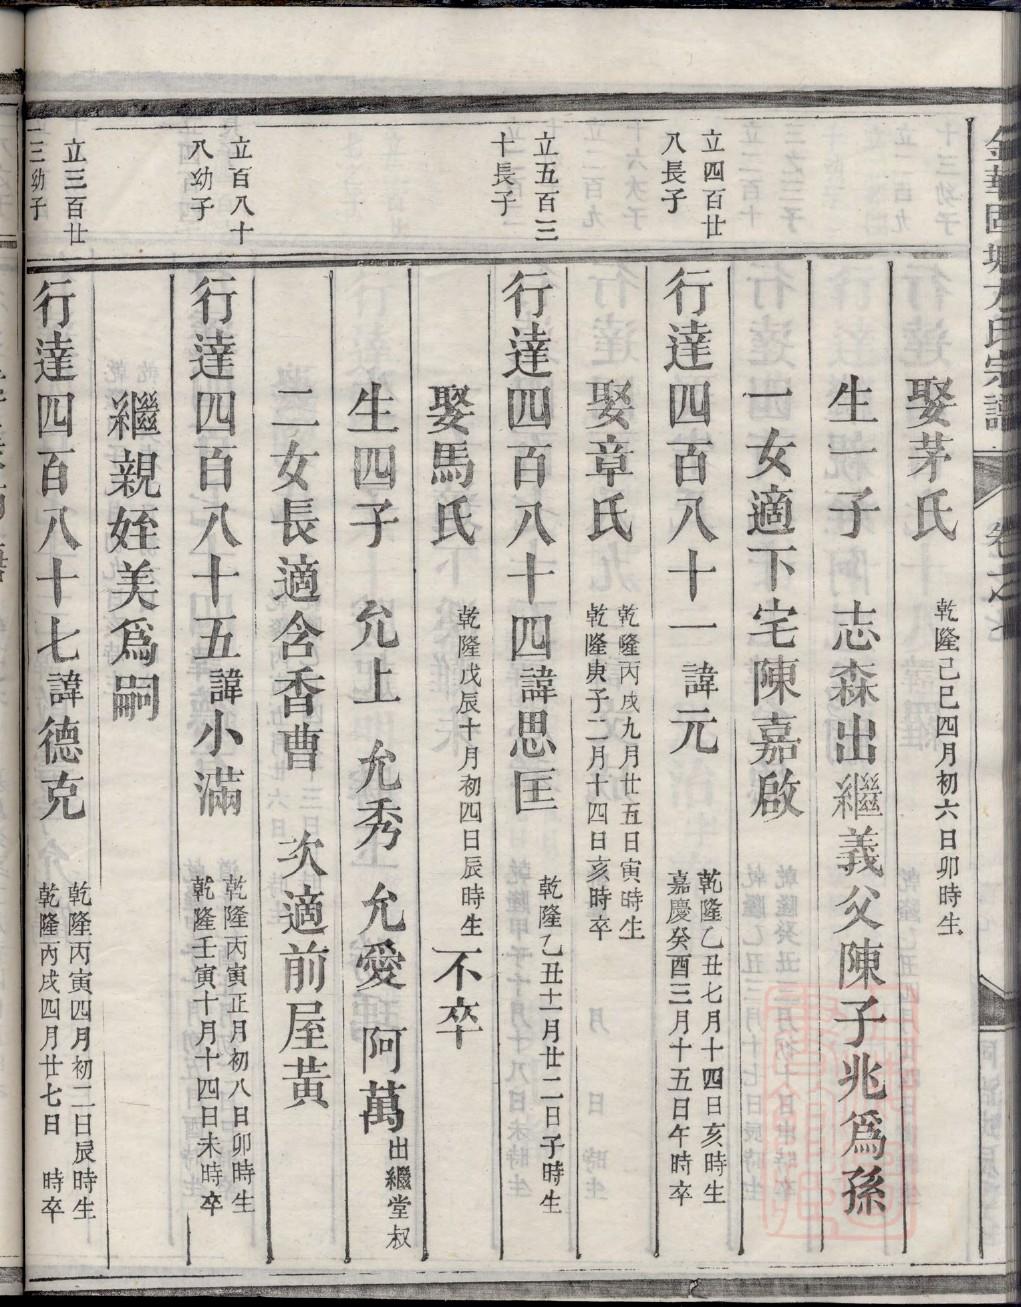 金華固塘方氏宗譜
卷之七
娶茅氏
乾隆己巳四月初六日卯時生
生一子 志森出繼義父陳子兆爲孫
一女適下宅陳嘉啟
立四百廿
八長子
行達四百八十一諱元
乾隆乙丑七月十四日亥時生
嘉慶癸酉三月十五日午時卒
娶章氏
乾隆丙戌九月廿五日寅時生
乾隆庚子二月十四日亥時卒
立五百三
十長子
行達四百八十四諱思匡
乾隆乙丑十一月廿二日子時生
娶馬氏
乾隆戊辰十月初四日辰時生
不卒
生四子 允上 允秀 允愛 阿萬
出繼堂叔
二女長適含香曹 次適前屋黃
立百八十
八幼子
行達四百八十五諱小滿
乾隆丙寅正月初八日卯時生
乾隆壬寅十月十四日未時卒
繼親姪美爲嗣
立三百廿
三幼子
行達四百八十七諱德克
乾隆丙寅四月初二日辰時生
乾隆丙戌四月廿七日 時卒